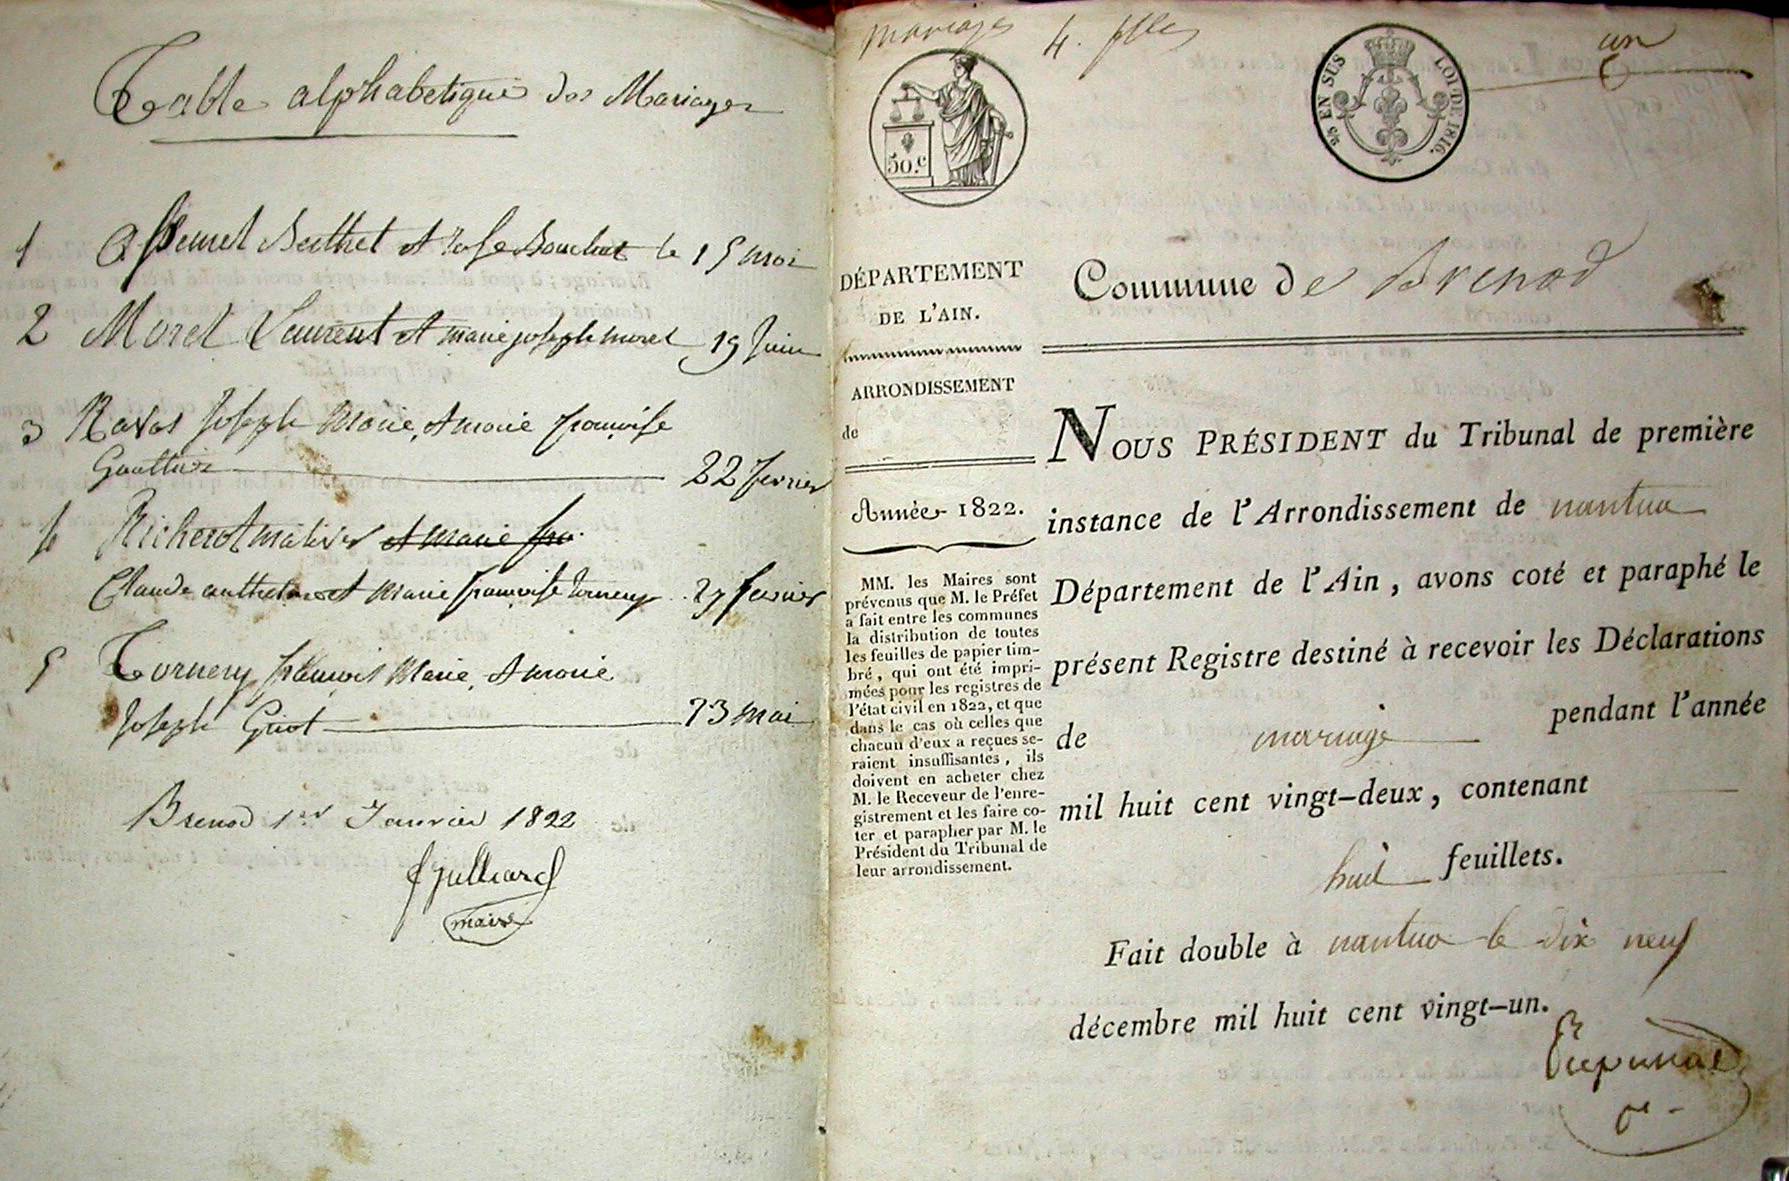 Table alphabetique des Mariages
1 Berthet et le 15 mai
2 Moret Laurent et marie josephe moret 19 Juin
3 Ravat Joseph Marie, et marie françoise
Gauthier 22 fevrier
4 et marie fra
Claude anthelme et marie françoise tornery 27 fevrier
5 Tornery françois Marie, et marie
Joseph Griot 23 mai
Brenod 1er Janvier 1822
Julliard
maire
mariages 4. flles
un
50.c
25 EN SUS
LOI DE 1816.
DÉPARTEMENT
DE L'AIN.
ARRONDISSEMENT
de
Année 1822.
MM. les Maires sont
prévenus que M. le Préfet
a fait entre les communes
la distribution de toutes
les feuilles de papier tim-
bré, qui ont été impri-
mées pour les registres de
l'état civil en 1822, et que
dans le cas où celles que
chacun d'eux a reçues se-
raient insuffisantes, ils
doivent en acheter chez
M. le Receveur de l'enre-
gistrement et les faire co-
ter et parapher par M. le
Président du Tribunal de
leur arrondissement.
Commune de Brenod
NOUS PRÉSIDENT du Tribunal de première
instance de l'Arrondissement de nantua
Département de l'Ain, avons coté et paraphé le
présent Registre destiné à recevoir les Déclarations
de mariage pendant l'année
mil huit cent vingt-deux, contenant
huit feuillets.
Fait double à nantua le dix neuf
décembre mil huit cent vingt-un.